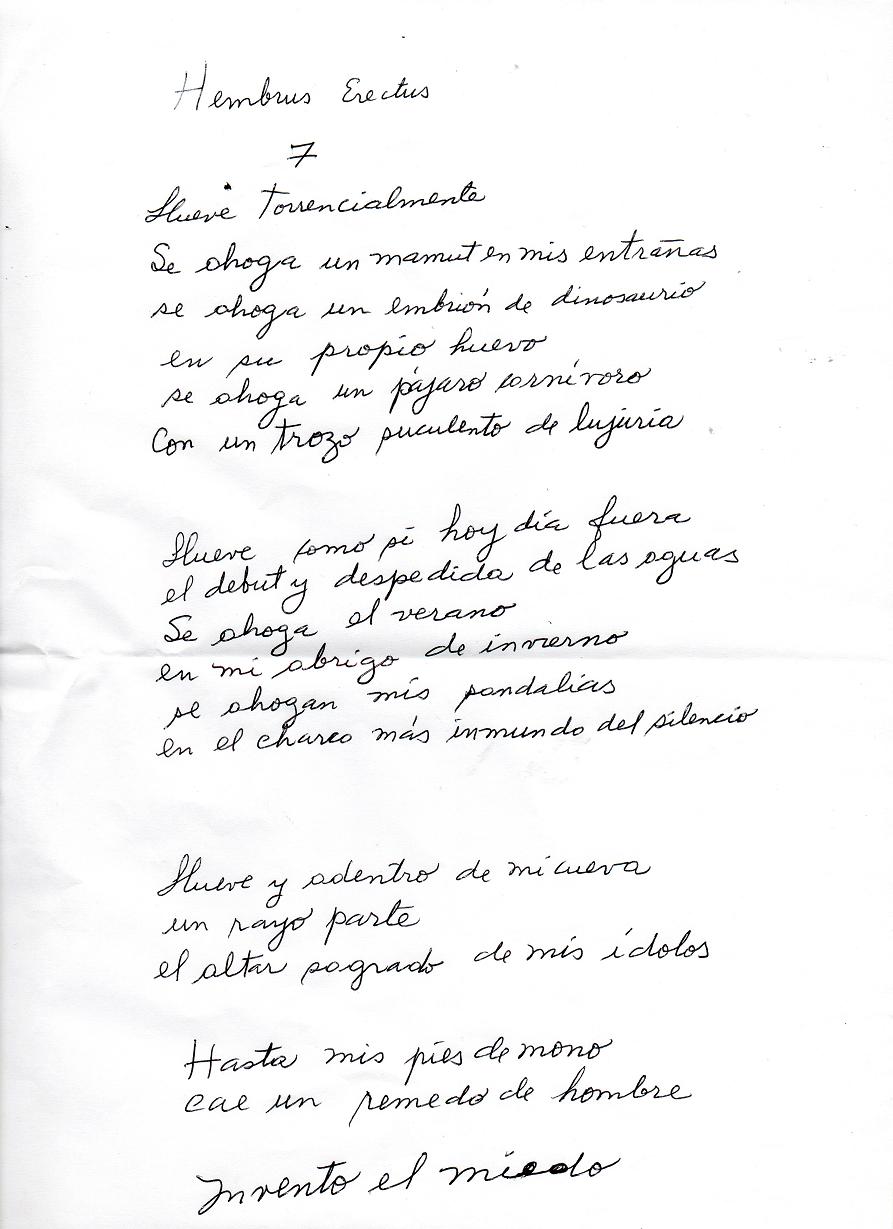 Hembrus Erectus
7
Llueve torrencialmente
Se ahoga un mamut en mis entrañas
se ahoga un embrión de dinosaurio
en su propio huevo
se ahoga un pájaro carnívoro
Con un trozo suculento de lujuria
Llueve como si hoy día fuera
el debut y despedida de las aguas
Se ahoga el verano
en mi abrigo de invierno
se ahogan mis sandalias
en el charco más inmundo del silencio
Llueve y adentro de mi cueva
un rayo parte
el altar sagrado de mis ídolos
Hasta mis pies de mono
cae un remedo de hombre
Invento el miedo